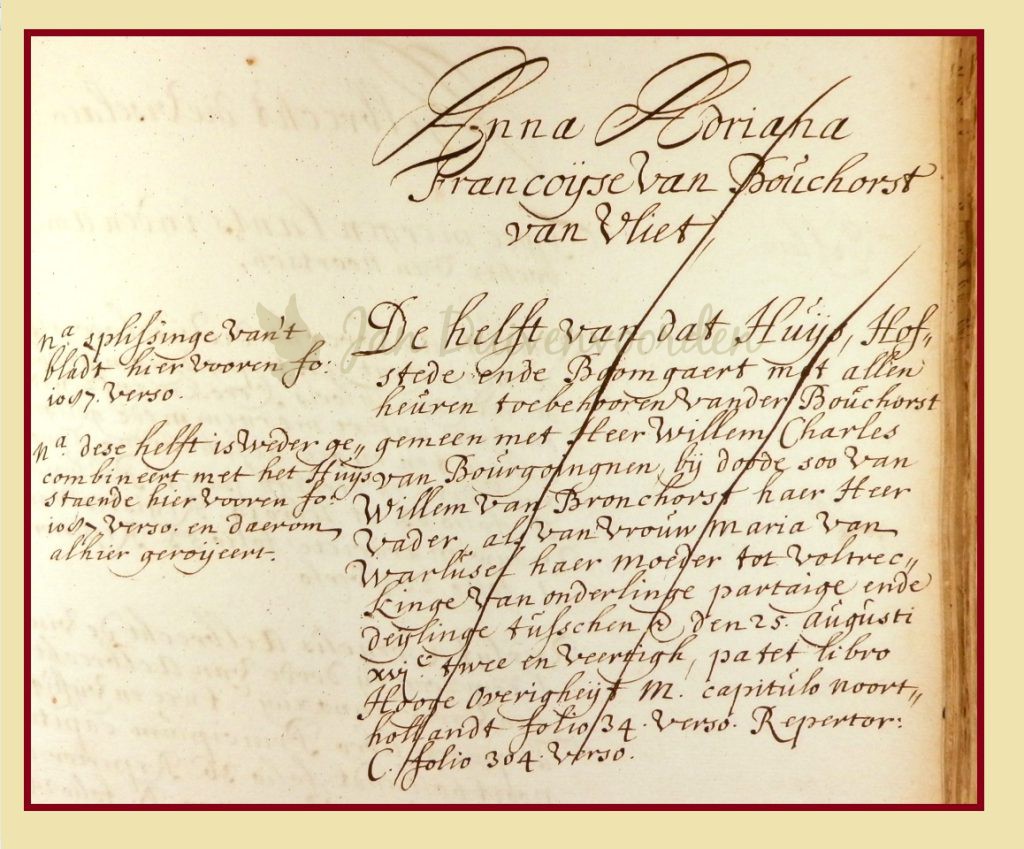 Anna Adriana
Francoÿse van Boúchorst
van Vliet,
De helft van dat Húijs, Hof„
stede ende Boomgaert met allen
heuren toebehooren vander Boúchorst
gemeen met Heer Willem Charles
van Boúrgoingnen, bij doode soo van
Willem van Bronchorst haer Heer
vader, als van vrouw Maria van
Warlúsel haer moeder tot voltrec„
kinge van onderlinge partaige ende
deijlinge tusschen den 25. augusti
xvjc twee en veertigh, patet libro
Hooge overigheijt M. capitulo noort„
hollandt folio 34. verso. Repertor:
C. folio 304. verso.
na. splissinge van't
bladt hier vooren fo:
1087. verso.
na. dese helft is weder ge„
combineert met het Huijs
staende hier vooren fo:
1087. verso. en daerom
alhier geroijeert.
Jan Duivenvoorden